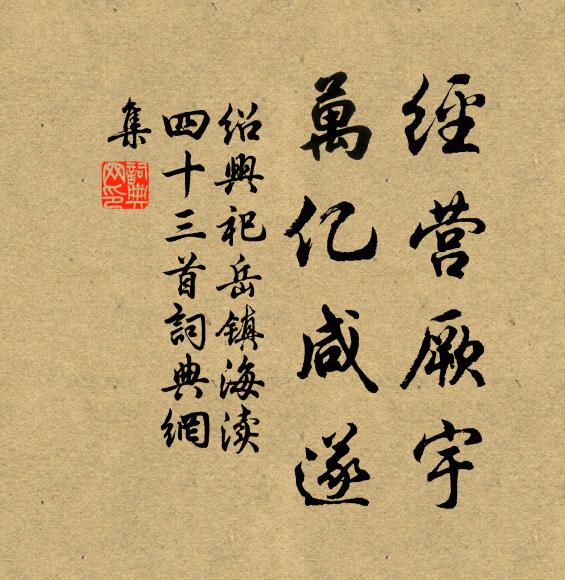 經营厥宇
萬亿咸遂
绍興祀岳镇海渎
四十三首詞典網
集
詞典
网印